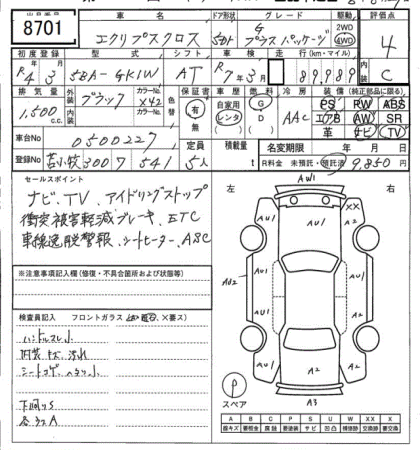 8701
車名
エクリプスクロス
ドア形状
5Dr
グレード
G
プラスパッケージ
駆動
2WD
4WD
評価点
4
C
初度登録
R4 3
型式
5BA-GK1W
シフト
AT
車検
R7年3月
走行(km・マイル)
89,989
排気量
1,500
cc
外装
内装
ブラック
カラーNo.
X42
カラーNo.
色替
保証書
有
無
車歴
自家用
レンタ
燃料
G
D
冷房
AAC
装備(純正部品に限る)
PS PW ABS
エアB AW SR
革 ナビ TV
車台No
0500227
登録No
苫小牧 300 ワ 541
定員
5人
積載量
t
名変期限
年 月 日
R料金 未預託・預託済 9,850円
セールスポイント
ナビ、TV、アイドリングストップ
衝突被害軽減ブレーキ、ETC
車線逸脱警報、シートヒーター、ASC
※注意事項記入欄(修復・不具合箇所および状態等)
検査員記入
フロントガラス
×要ス)
ハンドルスレ小
内装キズ、汚れ
下廻りS
左
右
AW1
XX
AU1
AU1
AU1
AU1
AU2
AU1
A2
A2
A2
A3
P
スペア
A B C P S U W X XX
線キズ
腐蝕
要塗装
サビ
凹凸
補修跡
要交換
交換済